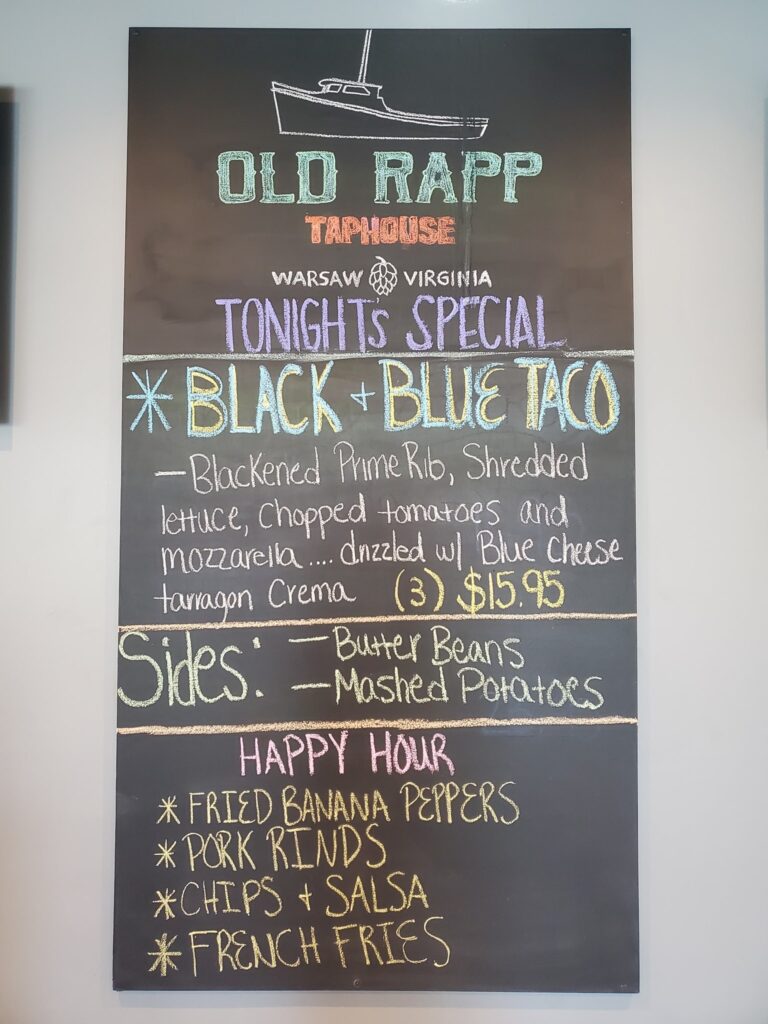 OLD RAPP
TAPHOUSE
WARSAW VIRGINIA
TONIGHTs SPECIAL
* BLACK + BLUE TACO
- Blackened Prime Rib, Shredded
lettuce, chopped tomatoes and
mozzarella .... drizzled w/ Blue Cheese
tarragon Crema (3) $15.95
Sides: - Butter Beans
- Mashed Potatoes
HAPPY HOUR
* FRIED BANANA PEPPERS
* PORK RINDS
* CHIPS + SALSA
* FRENCH FRIES